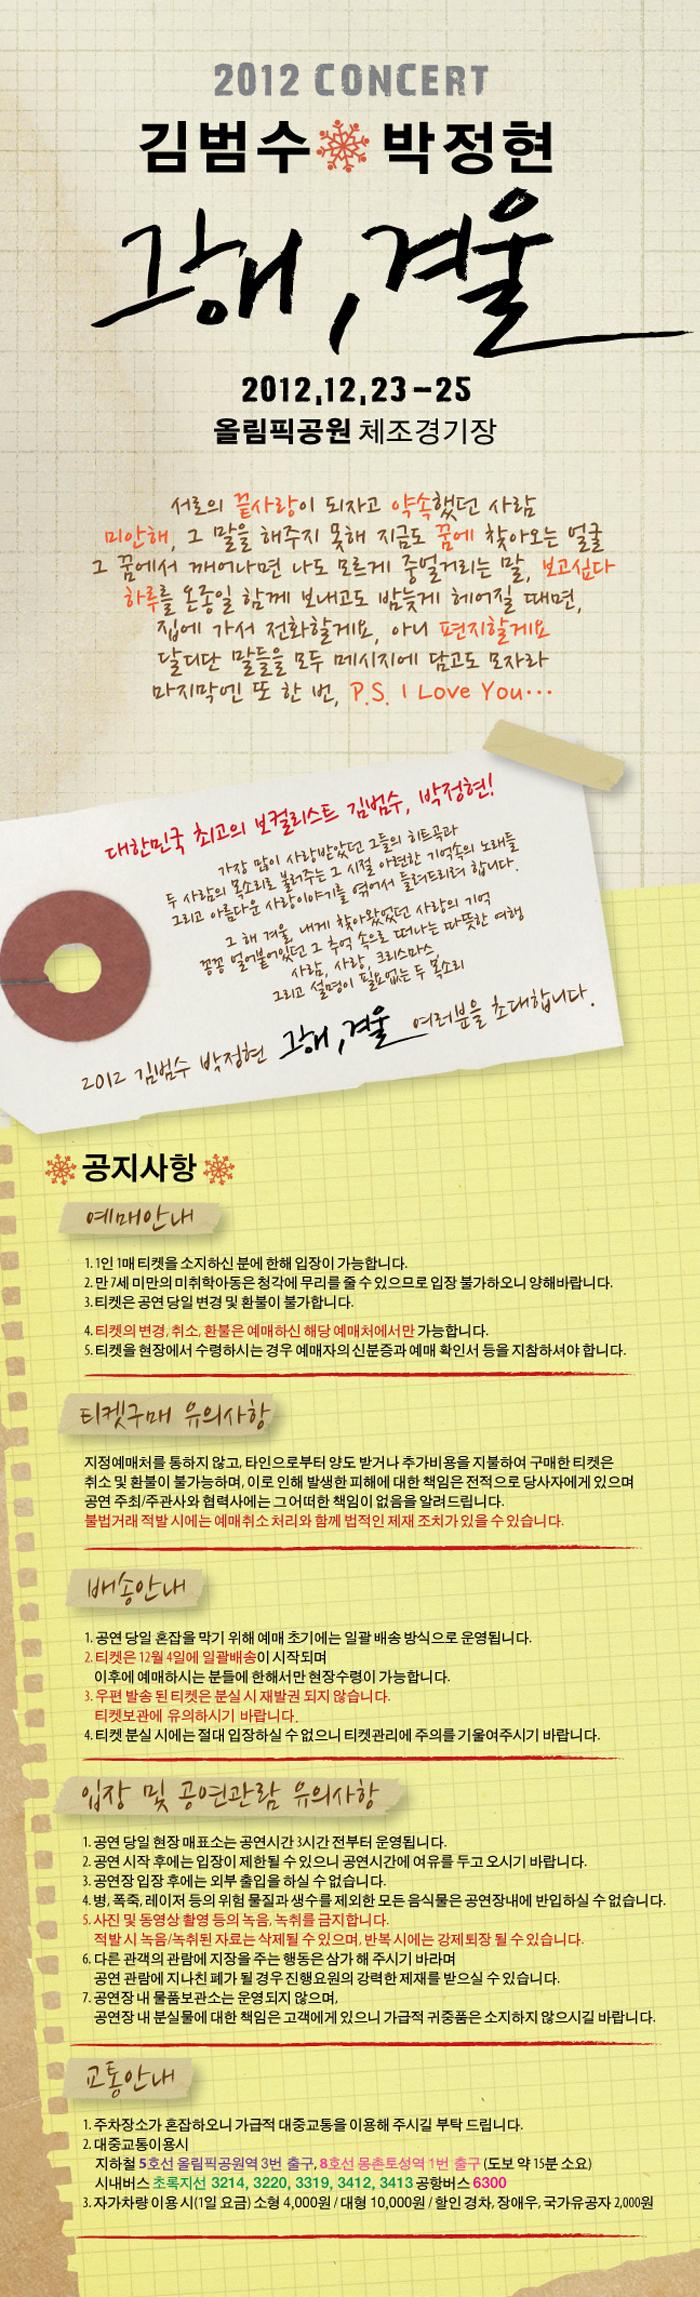 2012 CONCERT
김범수 박정현
그해, 겨울
2012.12.23-25
올림픽공원 체조경기장
서로의 끝사랑이 되자고 약속했던 사람
미안해, 그 말을 해주지 못해 지금도 꿈에 찾아오는 얼굴
그 꿈에서 깨어나면 나도 모르게 중얼거리는 말, 보고싶다
하루를 온종일 함께 보내고도 밤늦게 헤어질 때면,
집에 가서 전화할게요, 아니 편지할게요
달디단 말들을 모두 메시지에 담고도 모자라
마지막엔 또 한 번, P.S. I Love You...
대한민국 최고의 보컬리스트 김범수, 박정현!
가장 많이 사랑받았던 그들의 히트곡과
두 사람의 목소리로 불러주는 그 시절 아련한 기억속의 노래들
그리고 아름다운 사랑이야기를 엮어서 들려드리려 합니다.
그 해 겨울, 내게 찾아왔었던 사랑의 기억
꽁꽁 얼어붙어있던 그 추억 속으로 떠나는 따뜻한 여행
사람, 사랑, 크리스마스,
그리고 설명이 필요없는 두 목소리
2012 김범수 박정현 그해, 겨울 여러분을 초대합니다.
공지사항
예매안내
1. 1인 1매 티켓을 소지하신 분에 한해 입장이 가능합니다.
2. 만 7세 미만의 미취학아동은 청각에 무리를 줄 수 있으므로 입장 불가하오니 양해바랍니다.
3. 티켓은 공연 당일 변경 및 환불이 불가합니다.
4. 티켓의 변경, 취소, 환불은 예매하신 해당 예매처에서만 가능합니다.
5. 티켓을 현장에서 수령하시는 경우 예매자의 신분증과 예매 확인서 등을 지참하셔야 합니다.
티켓구매 유의사항
지정예매처를 통하지 않고, 타인으로부터 양도 받거나 추가비용을 지불하여 구매한 티켓은
취소 및 환불이 불가능하며, 이로 인해 발생한 피해에 대한 책임은 전적으로 당사자에게 있으며
공연 주최/주관사와 협력사에는 그 어떠한 책임이 없음을 알려드립니다.
불법거래 적발 시에는 예매취소 처리와 함께 법적인 제재 조치가 있을 수 있습니다.
배송안내
1. 공연 당일 혼잡을 막기 위해 예매 초기에는 일괄 배송 방식으로 운영됩니다.
2. 티켓은 12월 4일에 일괄배송이 시작되며
이후에 예매하시는 분들에 한해서만 현장수령이 가능합니다.
3. 우편 발송 된 티켓은 분실 시 재발권 되지 않습니다.
티켓보관에 유의하시기 바랍니다.
4. 티켓 분실 시에는 절대 입장하실 수 없으니 티켓관리에 주의를 기울여주시기 바랍니다.
입장 및 공연관람 유의사항
1. 공연 당일 현장 매표소는 공연시간 3시간 전부터 운영됩니다.
2. 공연 시작 후에는 입장이 제한될 수 있으니 공연시간에 여유를 두고 오시기 바랍니다.
3. 공연장 입장 후에는 외부 출입을 하실 수 없습니다.
4. 병, 폭죽, 레이저 등의 위험 물질과 생수를 제외한 모든 음식물은 공연장내에 반입하실 수 없습니다.
5. 사진 및 동영상 촬영 등의 녹음, 녹취를 금지합니다.
적발 시 녹음/녹취된 자료는 삭제될 수 있으며, 반복 시에는 강제퇴장 될 수 있습니다.
6. 다른 관객의 관람에 지장을 주는 행동은 삼가 해 주시기 바라며
공연 관람에 지나친 폐가 될 경우 진행요원의 강력한 제재를 받으실 수 있습니다.
7. 공연장 내 물품보관소는 운영되지 않으며,
공연장 내 분실물에 대한 책임은 고객에게 있으니 가급적 귀중품은 소지하지 않으시길 바랍니다.
교통안내
1. 주차장소가 혼잡하오니 가급적 대중교통을 이용해 주시길 부탁 드립니다.
2. 대중교통이용시
지하철 5호선 올림픽공원역 3번 출구, 8호선 몽촌토성역 1번 출구 (도보 약 15분 소요)
시내버스 초록지선 3214, 3220, 3319, 3412, 3413 공항버스 6300
3. 자가차량 이용 시(1일 요금) 소형 4,000원 / 대형 10,000원 / 할인 경차, 장애우, 국가유공자 2,000원